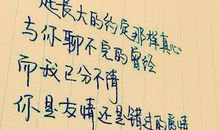 起长大的约定那样真心
与你聊不完的曾经
而我已分不清
你是友情还是错过的爱情